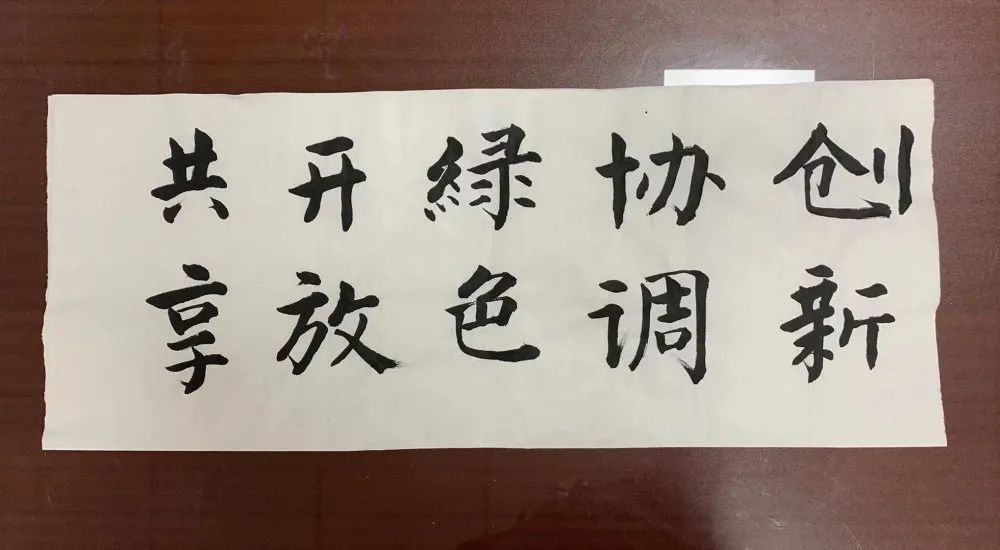 创新
协调
綠色
开放
共享